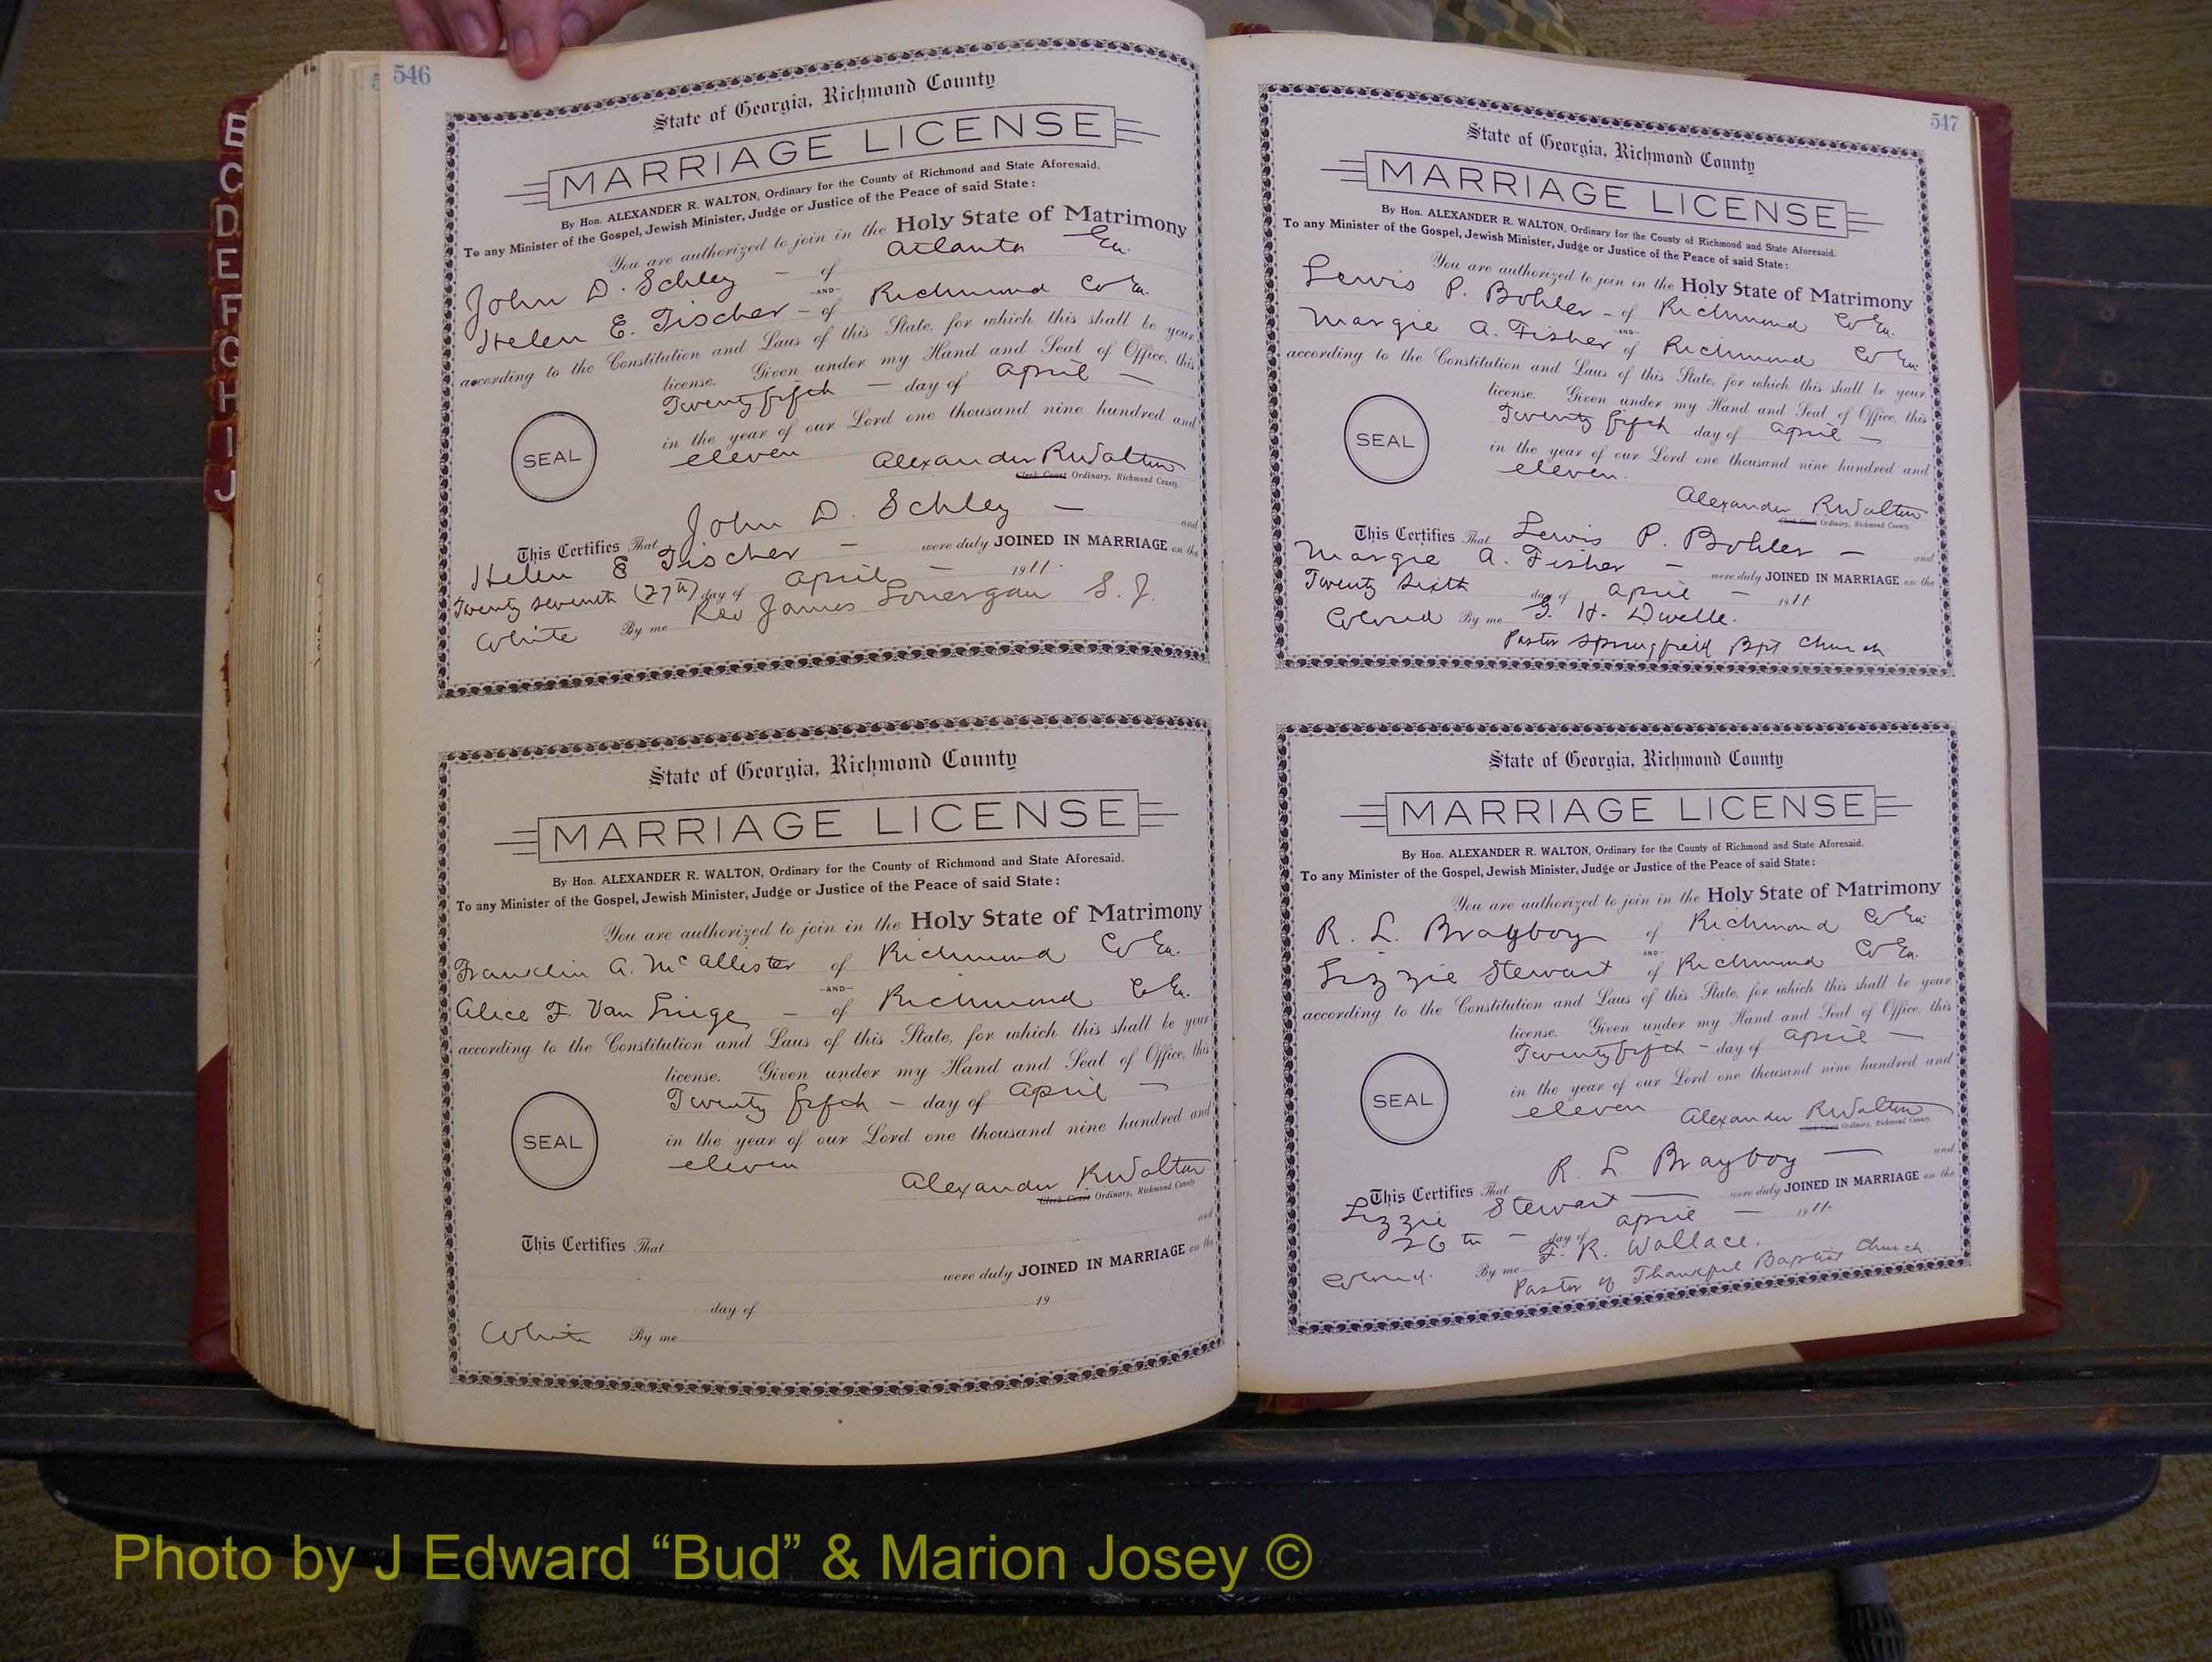 B
C
D
E
F
G
H
I
J
546
State of Georgia, Richmond County
MARRIAGE LICENSE
By Hon. ALEXANDER R. WALTON, Ordinary for the County of Richmond and State Aforesaid.
To any Minister of the Gospel, Jewish Minister, Judge or Justice of the Peace of said State:
You are authorized to join in the Holy State of Matrimony
John D. Schley - of Atlanta Ga.
-AND-
Helen E. Fischer - of Richmond Co Ga.
according to the Constitution and Laws of this State, for which this shall be your
license. Given under my Hand and Seal of Office, this
Twenty fifth - day of April -
in the year of our Lord one thousand nine hundred and
SEAL
eleven
Alexander R Walton
Clerk Court Ordinary, Richmond County.
This Certifies That John D. Schley - and
Helen E Fischer - were duly JOINED IN MARRIAGE on the
Twenty seventh (27th) day of April - 1911.
White By me Rev James Lonergan S. J.
State of Georgia, Richmond County
MARRIAGE LICENSE
By Hon. ALEXANDER R. WALTON, Ordinary for the County of Richmond and State Aforesaid.
To any Minister of the Gospel, Jewish Minister, Judge or Justice of the Peace of said State:
You are authorized to join in the Holy State of Matrimony
Franklin A. McAllister of Richmond Co Ga.
-AND-
Alice F. Van - of Richmond Co Ga.
according to the Constitution and Laws of this State, for which this shall be your
license. Given under my Hand and Seal of Office, this
Twenty fifth - day of April -
in the year of our Lord one thousand nine hundred and
SEAL
eleven
Alexander R Walton
Clerk Court Ordinary, Richmond County
This Certifies That and
were duly JOINED IN MARRIAGE on the
day of 19
White By me
547
State of Georgia, Richmond County
MARRIAGE LICENSE
By Hon. ALEXANDER R. WALTON, Ordinary for the County of Richmond and State Aforesaid.
To any Minister of the Gospel, Jewish Minister, Judge or Justice of the Peace of said State:
You are authorized to join in the Holy State of Matrimony
Lewis P. Bohler - of Richmond Co Ga.
-AND-
Margie A. Fisher of Richmond Co Ga.
according to the Constitution and Laws of this State, for which this shall be your
license. Given under my Hand and Seal of Office, this
Twenty fifth day of April -
in the year of our Lord one thousand nine hundred and
SEAL
eleven.
Alexander R Walton
Clerk Court Ordinary, Richmond County.
This Certifies That Lewis P. Bohler - and
Margie A. Fisher - were duly JOINED IN MARRIAGE on the
Twenty Sixth day of April - 1911
Colored By me G. H. Dwelle.
Pastor Springfield Bpt Church
State of Georgia, Richmond County
MARRIAGE LICENSE
By Hon. ALEXANDER R. WALTON, Ordinary for the County of Richmond and State Aforesaid.
To any Minister of the Gospel, Jewish Minister, Judge or Justice of the Peace of said State:
You are authorized to join in the Holy State of Matrimony
R. L. Brayboy of Richmond Co Ga
-AND-
Lizzie Stewart of Richmond Co Ga.
according to the Constitution and Laws of this State, for which this shall be your
license. Given under my Hand and Seal of Office, this
Twenty fifth - day of April -
in the year of our Lord one thousand nine hundred and
SEAL
eleven
Alexander R Walton
Clerk Court Ordinary, Richmond County.
This Certifies That R. L. Brayboy - and
Lizzie Stewart - were duly JOINED IN MARRIAGE on the
26 th - day of April - 1911.
Colored. By me F. R. Wallace.
Pastor of Thankful Baptist Church
Photo by J Edward “Bud” & Marion Josey ©